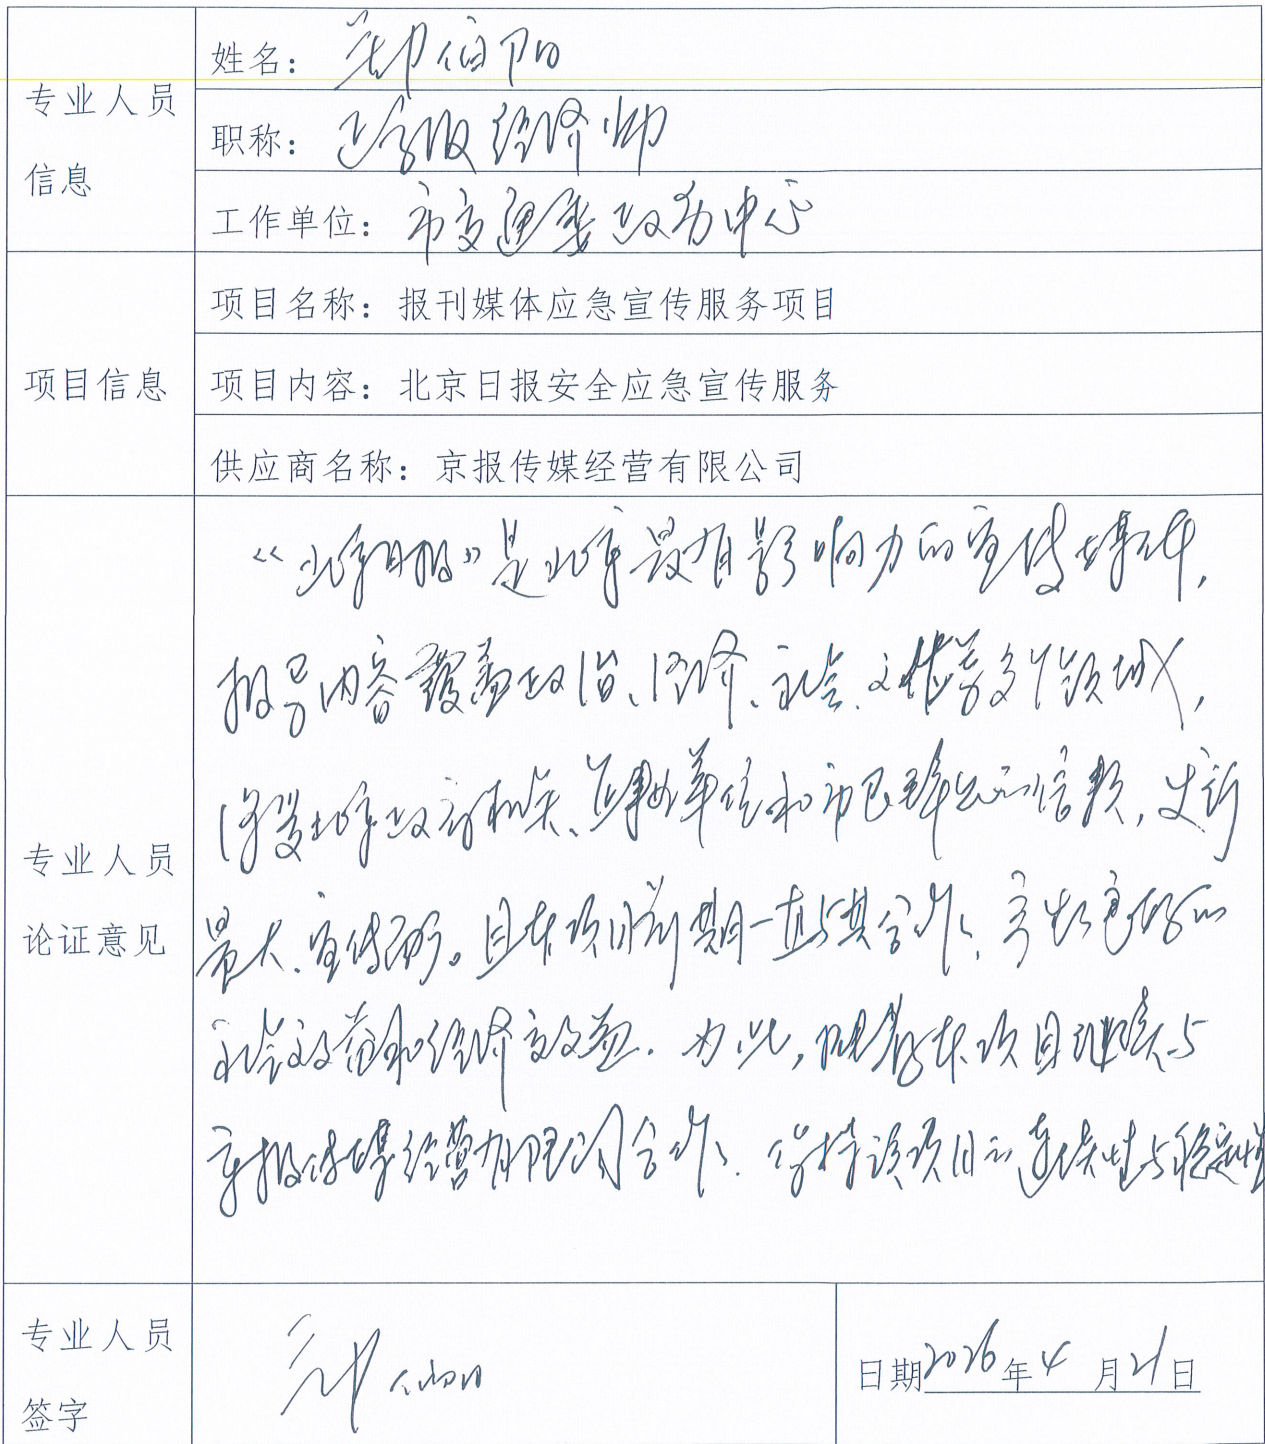 专业人员
信息
姓名：郑伯阳
职称：正高级经济师
工作单位：市交通委政务中心
项目信息
项目名称：报刊媒体应急宣传服务项目
项目内容：北京日报安全应急宣传服务
供应商名称：京报传媒经营有限公司
专业人员
论证意见
《北京日报》是北京最有影响力的宣传媒体，
报导内容覆盖政治、经济、社会、文化等多个领域，
深受北京政府机关、企事业单位和市民群众的信赖，发行
量大、宣传面广。且本项目前期一直与其合作，产生良好的
社会效益和经济效益。为此，推荐本项目继续与
京报传媒经营有限公司合作，保持该项目的连续性与稳定性
专业人员
签字
郑伯阳
日期2026年4月21日